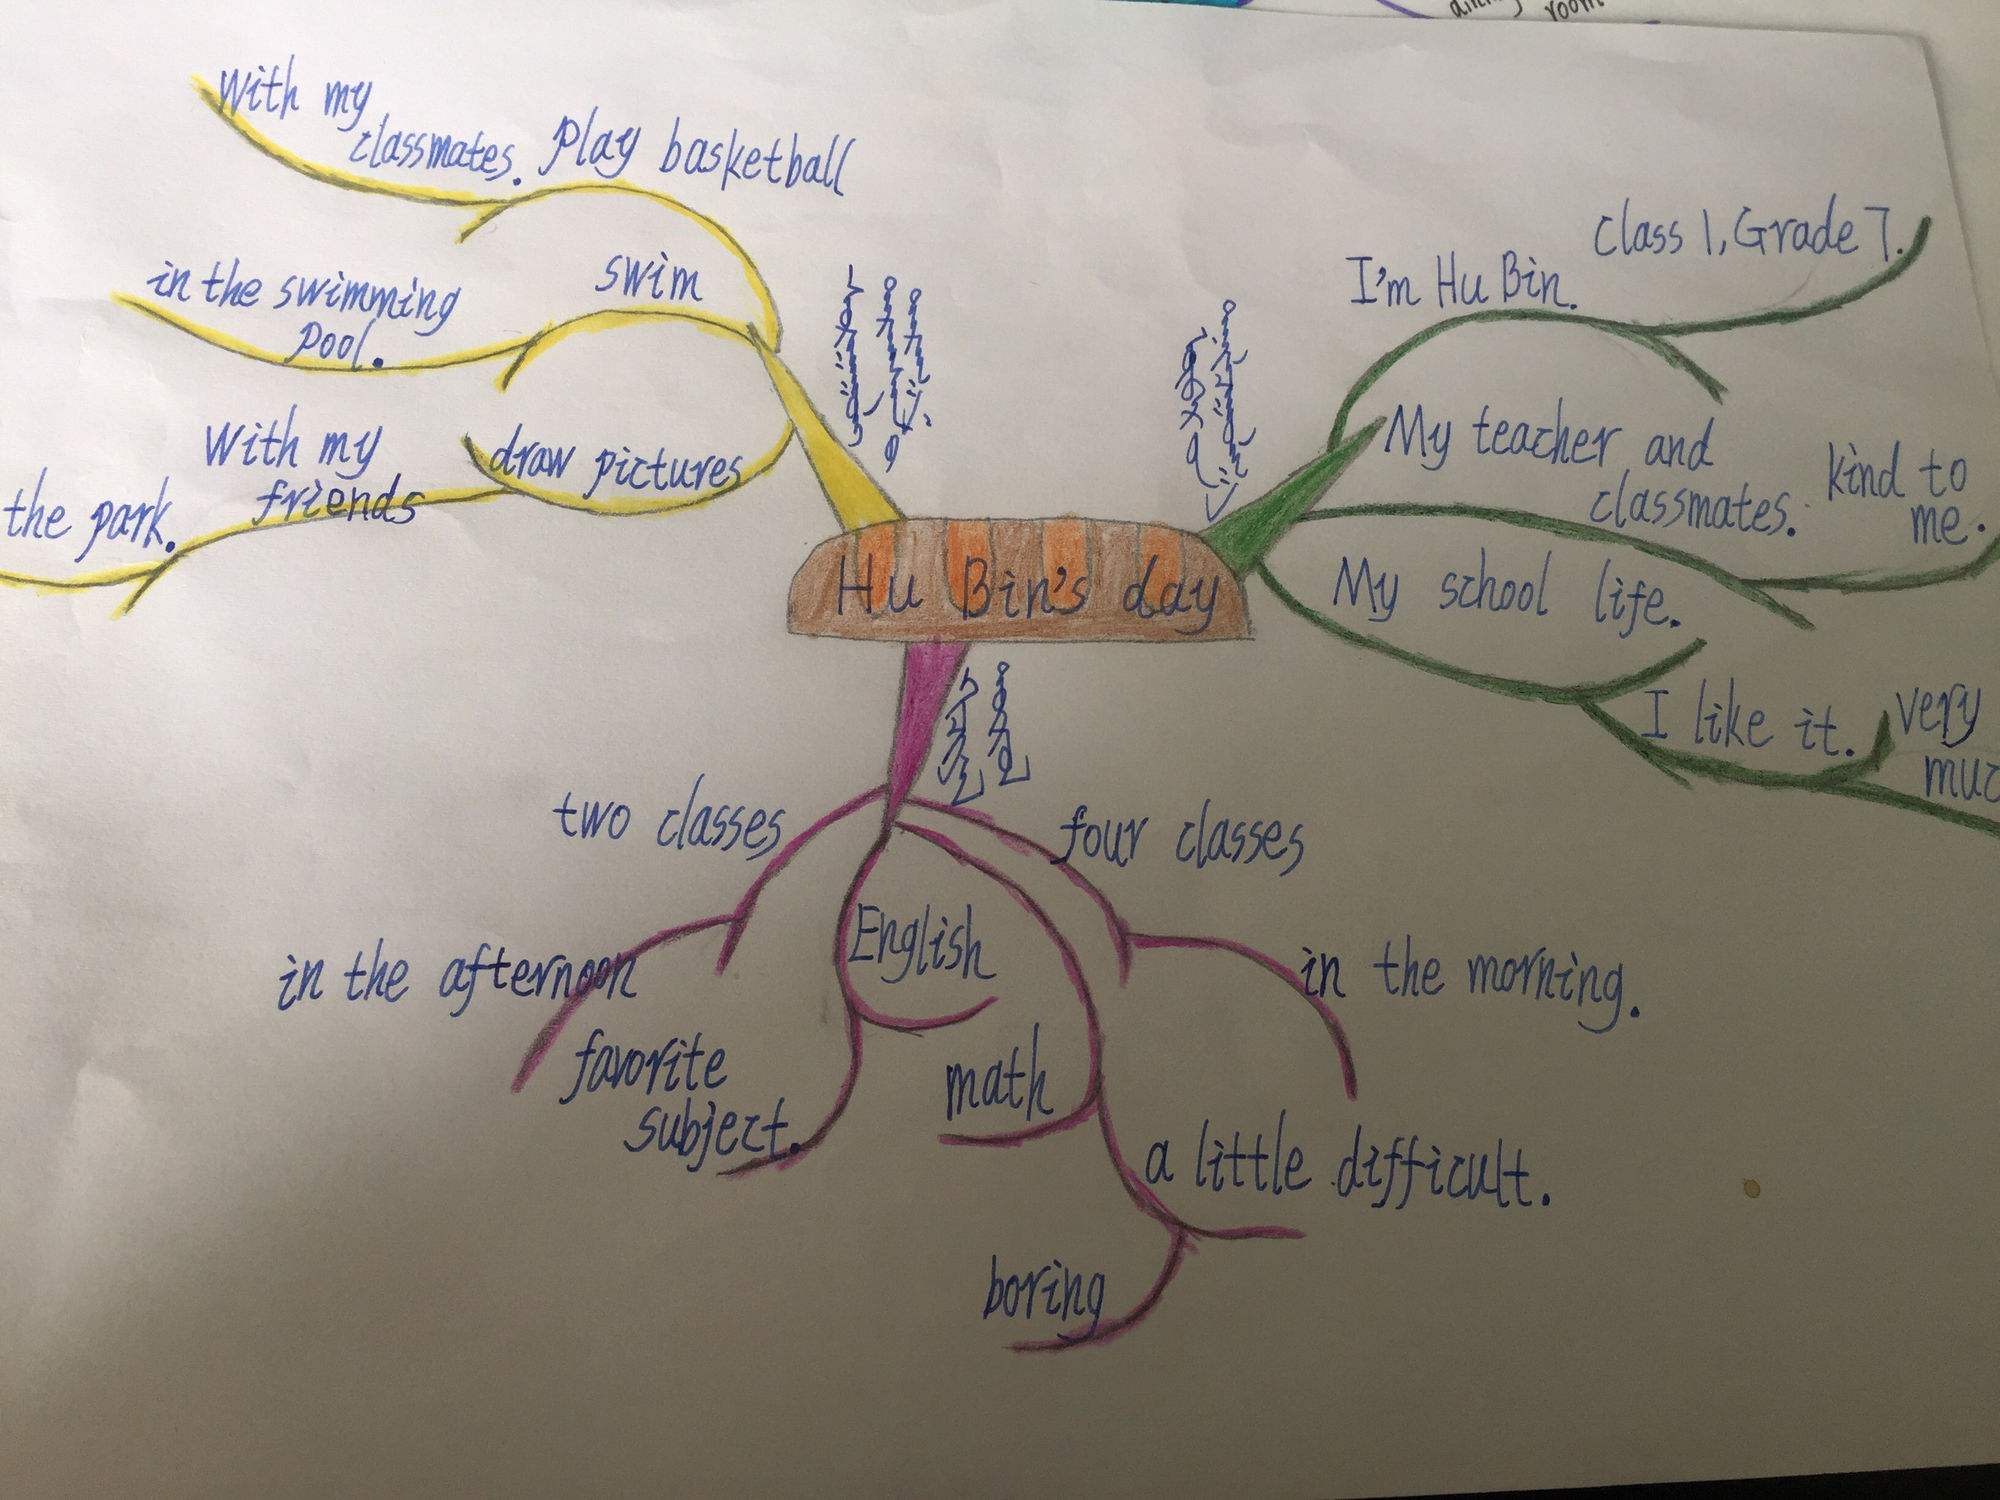 room
With my
classmates.
Play basketball
in the swimming
pool.
swim
With my
friends
the park.
draw pictures
Hu Bin's day
I'm Hu Bin.
Class 1, Grade 7.
My teacher and
classmates.
kind to
me.
My school life.
I like it.
very
two classes
in the afternoon
English
favorite
subject.
math
a little difficult.
boring
four classes
in the morning.